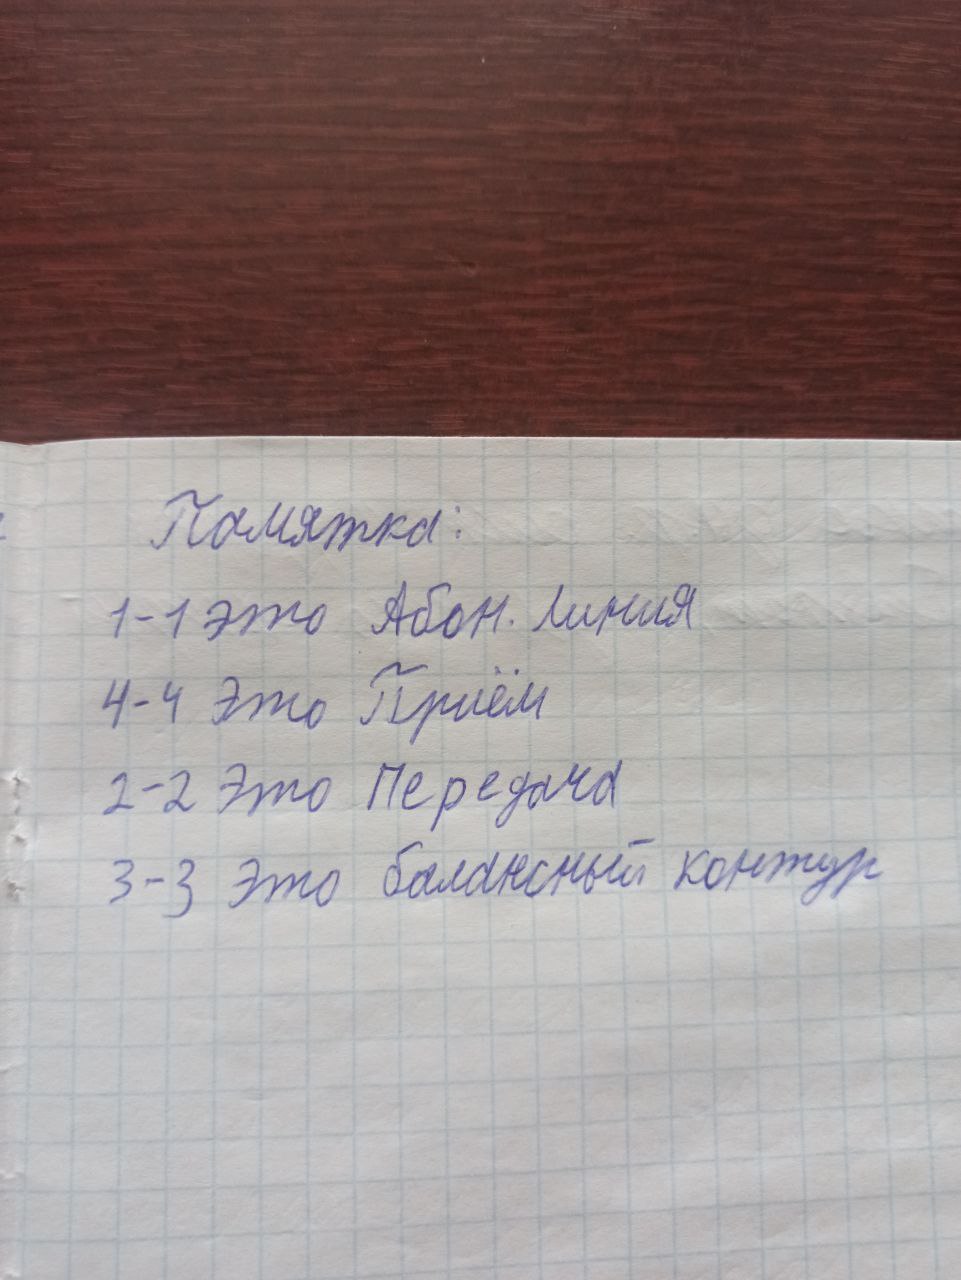 Памятка:
1-1 это Абон. линия
4-4 Это Приём
2-2 Это Передача
3-3 Это балансный контур